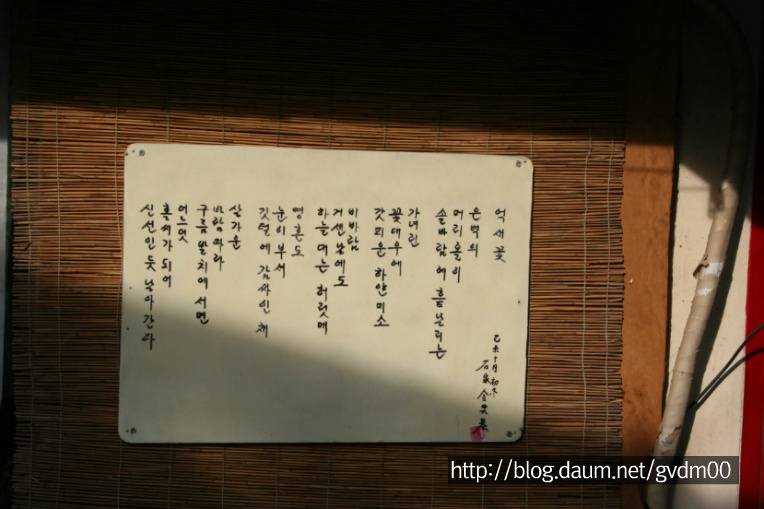 억새꽃
은백의
머리올이
솔바람에 흩날리는
가녀린
꽃대우에
갓피운 하얀미소
비바람
거센날에도
하늘대는 허릿매
영혼도
눈이부셔
깃털에 감싸인채
살가운
바람따라
구름발치에 서면
어느덧
되어
신선인듯 날아간다
十月
石 金
http://blog.daum.net/gvdm00